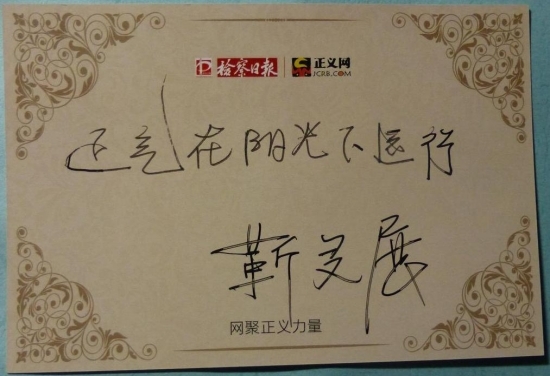 检察日报 正义网
JCRB.COM
正气在阳光下运行
靳 展
网聚正义力量